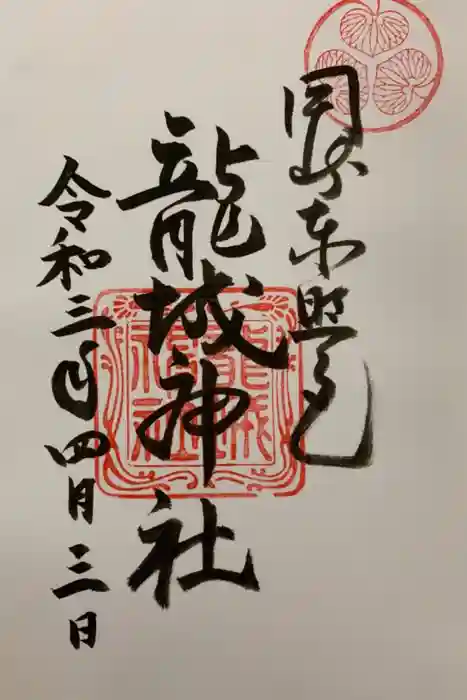 岡崎東照宮
龍城神社
令和三年四月三日
龍城神社